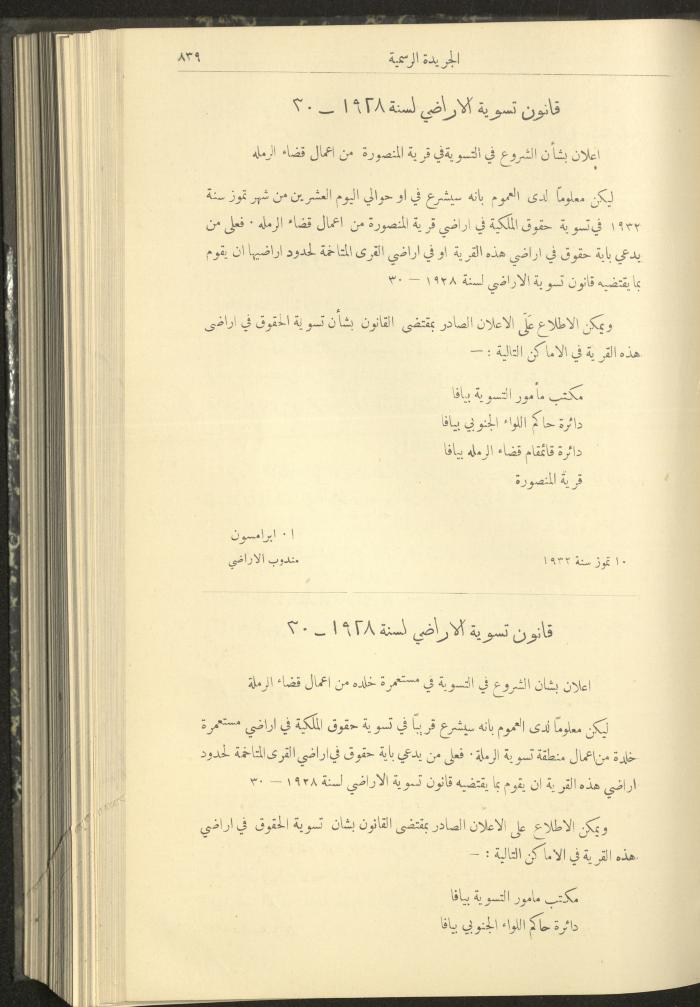 الجريدة الرسمية ٨٣٩
قانون تسوية الاراضي لسنة ١٩٢٨ – ٣٠
اعلان بشأن الشروع في التسوية في قرية المنصورة من اعمال قضاء الرمله
ليكن معلوماً لدى العموم بانه سيشرع في او حوالي اليوم العشرين من شهر تموز سنة
١٩٣٢ في تسوية حقوق الملكية في اراضي قرية المنصورة من اعمال قضاء الرمله ٠ فعلى من
يدعي باية حقوق في اراضي هذه القرية او في اراضي القرى المتاخمة لحدود اراضيها ان يقوم
بما يقتضيه قانون تسوية الاراضي لسنة ١٩٢٨ – ٣٠
ويمكن الاطلاع عَلَى الاعلان الصادر بمقتضى القانون بشأن تسوية الحقوق في اراضى
هذه القرية في الاماكن التالية : –
مكتب مأمور التسوية بيافا
دائرة حاكم اللواء الجنوبي بيافا
دائرة قائمقام قضاء الرمله بيافا
قرية المنصورة
ا ٠ ابرامسون
١٠ تموز سنة ١٩٣٢ مندوب الاراضي
قانون تسوية الاراضي لسنة ١٩٢٨ – ٣٠
اعلان بشان الشروع في التسوية في مستعمرة خلده من اعمال قضاء الرملة
ليكن معلوماً لدى العموم بانه سيشرع قريباً في تسوية حقوق الملكية في اراضي مستعمرة
خلدة من اعمال منطقة تسوية الرملة ٠ فعلى من يدعي باية حقوق في اراضي القرى المتاخمة لحدود
اراضي هذه القرية ان يقوم بما يقتضيه قانون تسوية الاراضي لسنة ١٩٢٨ – ٣٠
ويمكن الاطلاع على الاعلان الصادر بمقتضى القانون بشان تسوية الحقوق في اراضي
هذه القرية في الاماكن التالية : –
مكتب مامور التسوية بيافا
دائرة حاكم اللواء الجنوبي بيافا